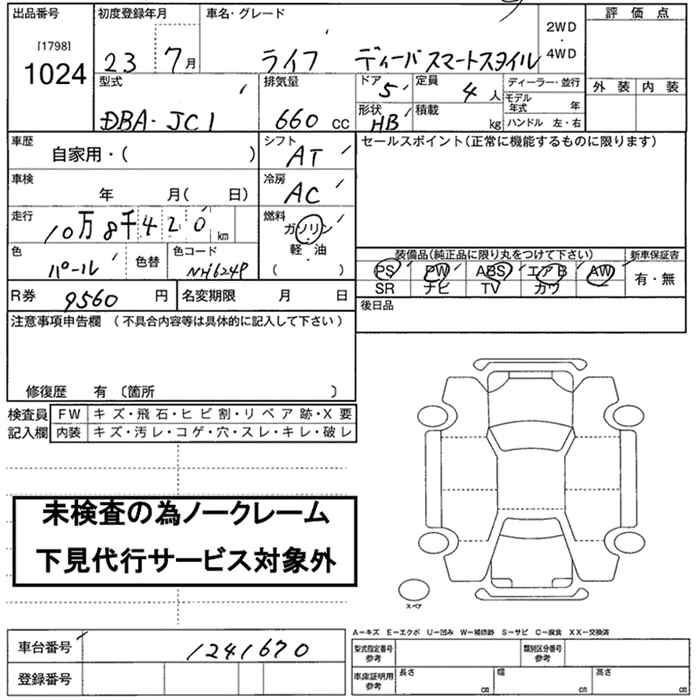 出品番号 初度登録年月 車名・グレード 2WD ・ 4WD 評価点
[1798]
1024 23 7月 ライフ ディーバスマートスタイル
型式 排気量 ドア 5 定員 4人 ディーラー・並行 外装 内装
DBA-JC1 660 cc 形状 HB 積載 kg モデル年式 年
ハンドル 左・右
車歴 自家用・( ) シフト AT セールスポイント(正常に機能するものに限ります)
車検 年 月( 日) 冷房 AC
走行 10万8千420km 燃料 ガソリン
軽・油
( )
色 パール 色替 色コード NH624P 装備品(純正品に限り丸をつけて下さい) 新車保証書
PS PW ABS エアB AW 有・無
SR ナビ TV カワ
R券 9560円 名変期限 月 日 後日品
注意事項申告欄 (不具合内容等は具体的に記入して下さい)
修復歴 有 〔箇所 〕
検査員 FW キズ・飛石・ヒビ割・リペア跡・X要
記入欄 内装 キズ・汚レ・コゲ・穴・スレ・キレ・破レ
未検査の為ノークレーム
下見代行サービス対象外
スペア
A-キズ E-エクボ U-凹み W-補修跡 S-サビ C-腐食 XX-交換済
車台番号 1241670 型式指定番号 参考 類別区分番号 参考
登録番号 車庫証明用 参考 長さ cm 幅 cm 高さ cm